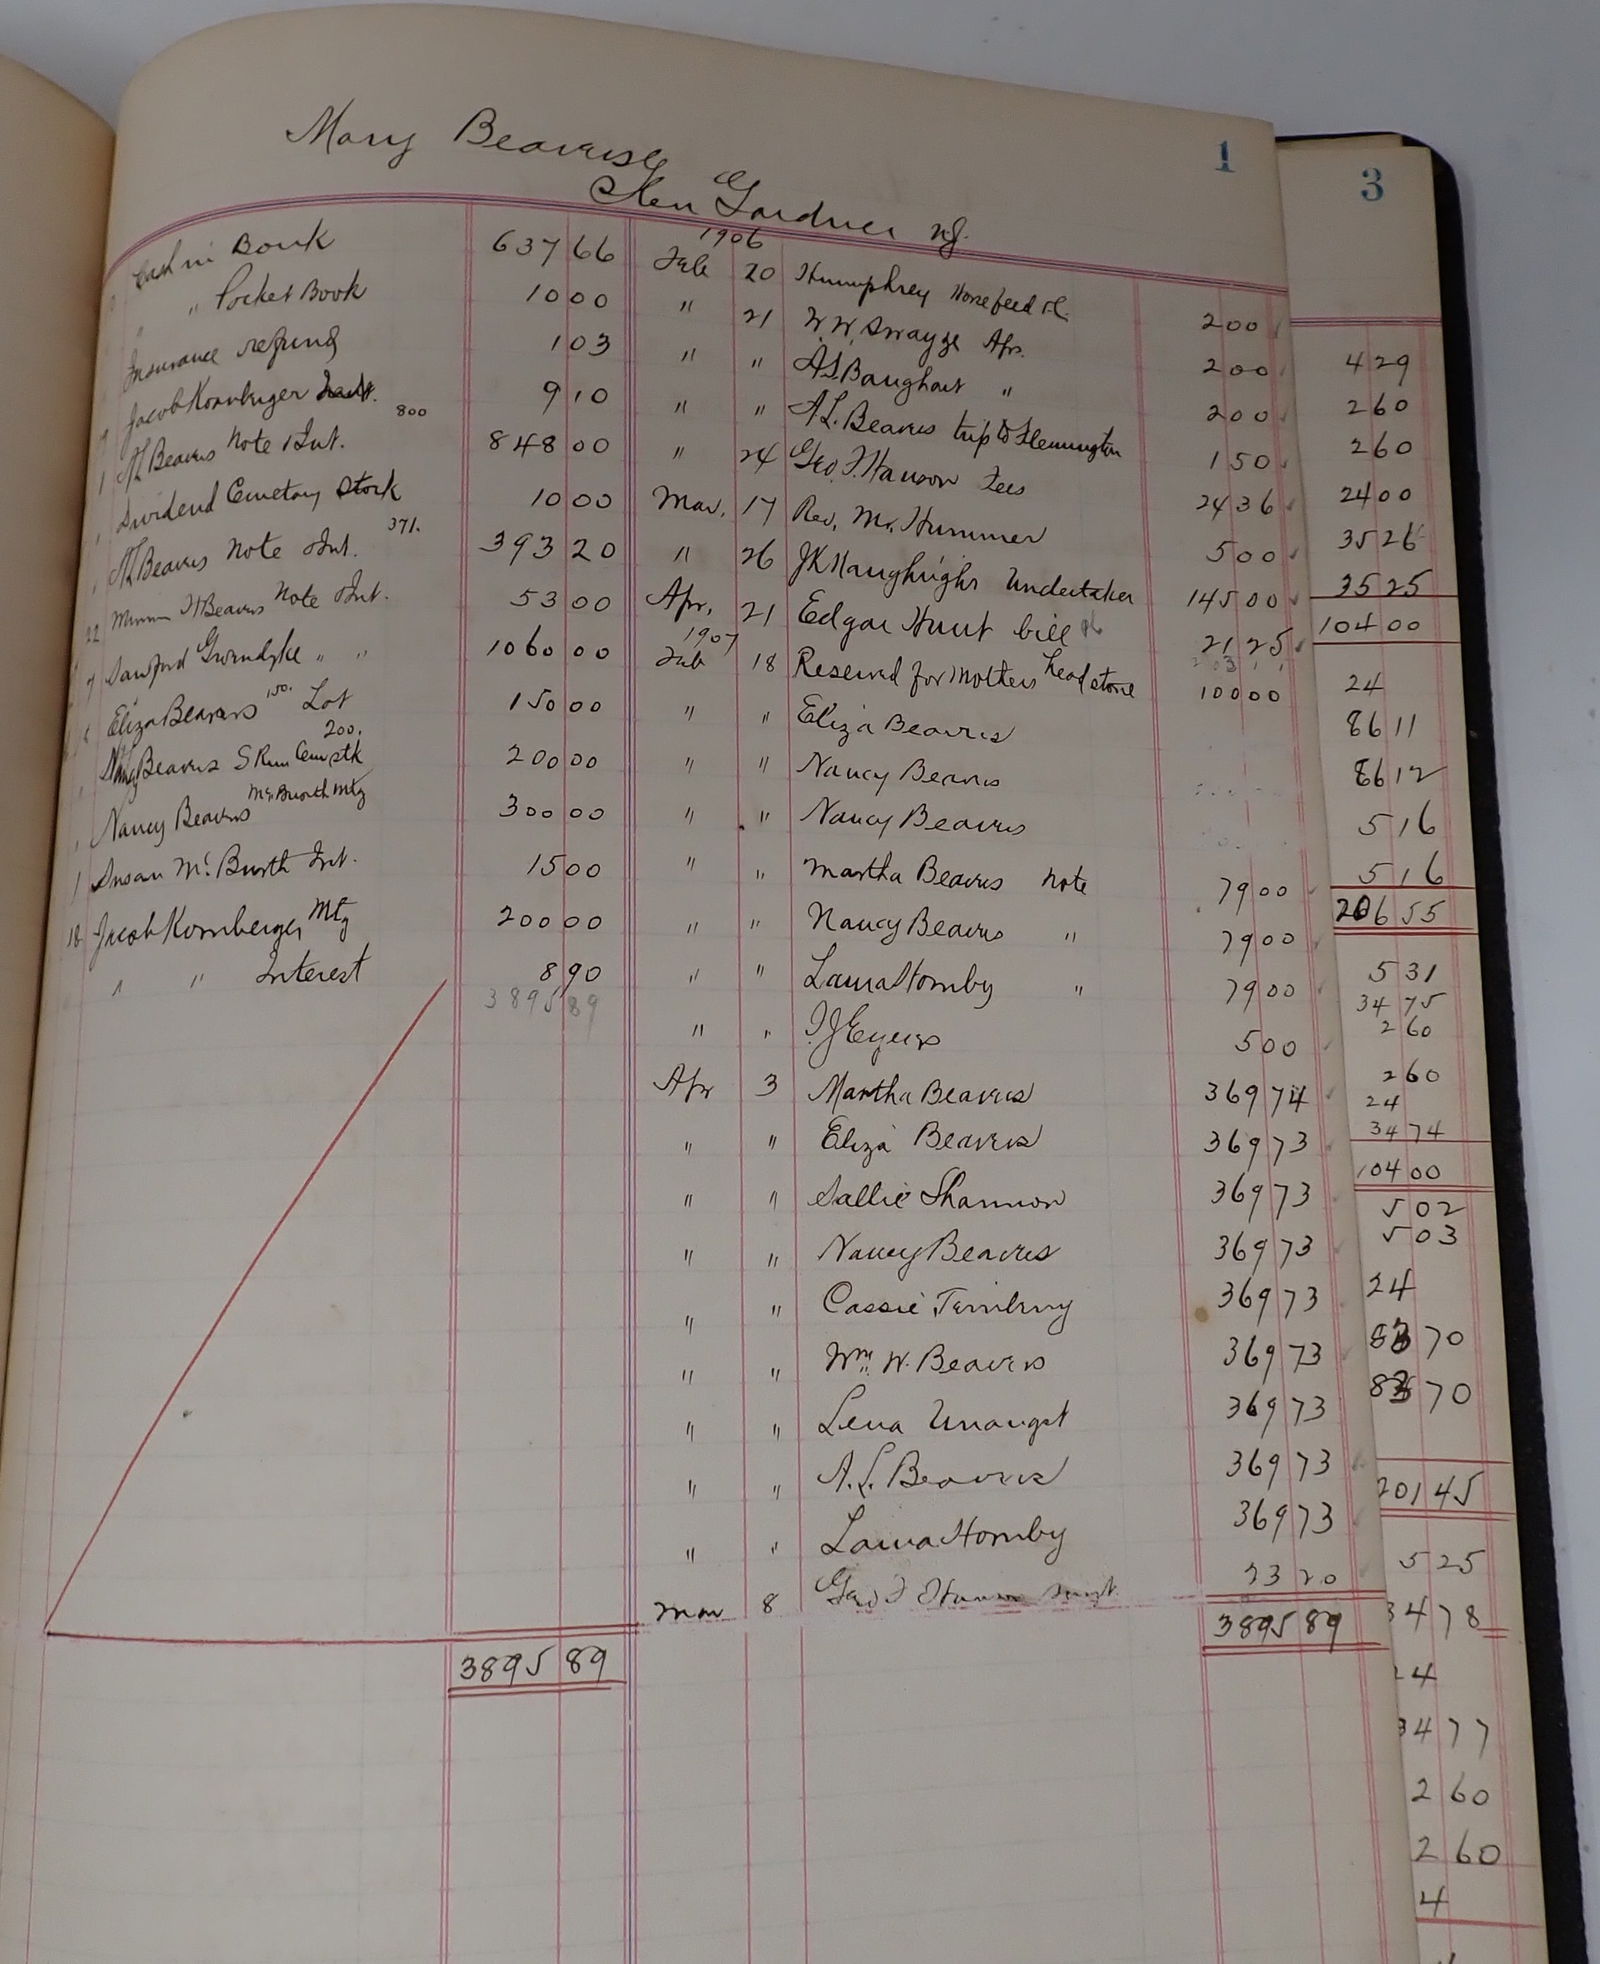 Mary Beavers
Glen Gardner NJ.
1
Cash in Bank 637 66
" " Pocket Book 10 00
Insurance refund 1 03
Jacob Kornberger 9 10
AL Beavers Note & Int. 800 848 00
Dividend Cemetary Stock 10 00
AL Beavers Note & Int. 371. 393 20
22 H Beavers Note & Int. 53 00
7 Sanford " " 1060 00
Eliza Beavers 150. Lot 150 00
Nancy Beavers S Run Cem stk 200. 200 00
Nancy Beavers Mc Burth Mtg 300 00
1 Susan Mc Burth Int. 15 00
18 Jacob Kornberger Mtg 200 00
" " Interest 8 90
3895 89
3895 89
1906
Feb 20 Humphrey Horse feed 2 00
" 21 W. W. Swayze Apr. 2 00
" " A.S. Baughart " 2 00
" " A. L. Beavers trip to Flemington 1 50
" 24 Geo. F. Hanson Fees 24 36
Mar. 17 Rev. Mr. Hummer 5 00
" 26 JK Naughright Undertaker 145 00
Apr. 21 Edgar Hunt bill 21 25
1907
Feb 18 Reserved for Mothers head stone 100 00
" " Eliza Beavers
" " Nancy Beavers
" " Nancy Beavers
" " Martha Beavers Note 79 00
" " Nancy Beavers " 79 00
" " Laura Hornby " 79 00
" " 5 00
Apr 3 Martha Beavers 369 74
" " Eliza Beavers 369 73
" " Sallie Shannon 369 73
" " Nancy Beavers 369 73
" " Cassie 369 73
" " Wm. W. Beavers 369 73
" " Lena Unangst 369 73
" " A. L. Beavers 369 73
" " Laura Hornby 369 73
Mar 8 Geo F Hanson 23 20
3895 89
3
4 29
2 60
2 60
24 00
35 26
35 25
104 00
24
86 11
86 12
5 16
5 16
206 55
5 31
34 75
2 60
2 60
24
34 74
104 00
5 02
5 03
24
70
70
201 45
5 25
34 78
24
34 77
2 60
2 60
4